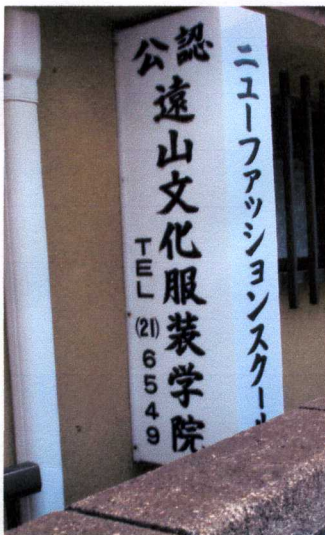 公認
遠山文化服装学院
TEL(21)6549
ニューファッションスクール